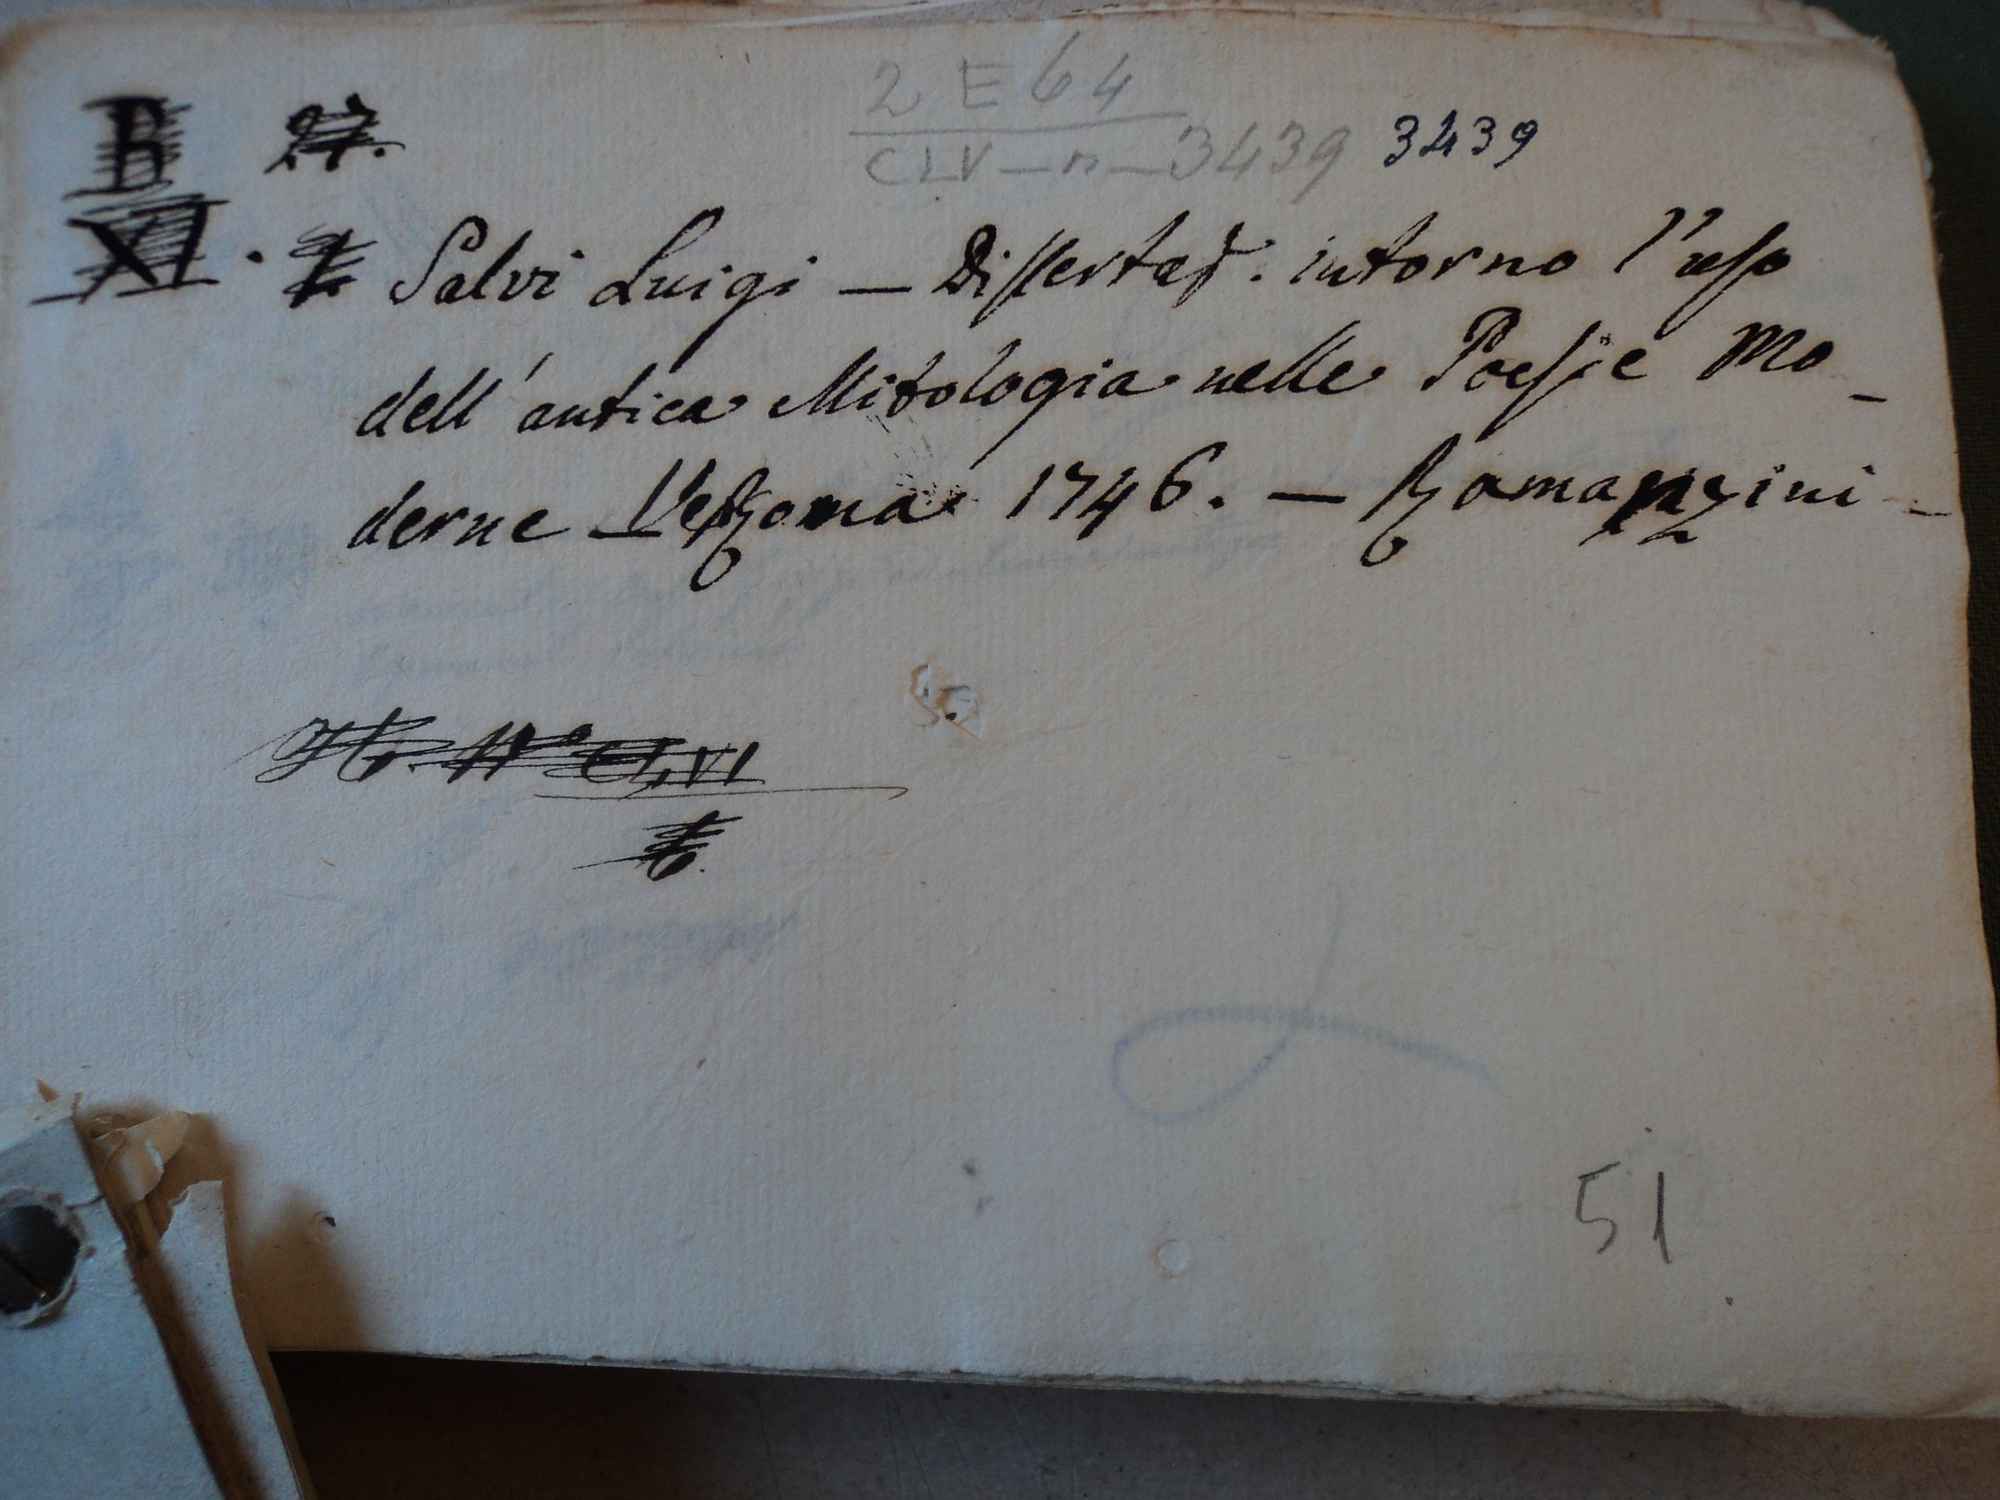 2 E 64
B 27.
CLV - n - 3439 3439
XI. Salvi Luigi — Dissertaz. intorno l'uso
dell'antica Mitologia nelle Poesie Mo-
derne — Verona 1746. — Ramanzini -
CLVI
6.
51